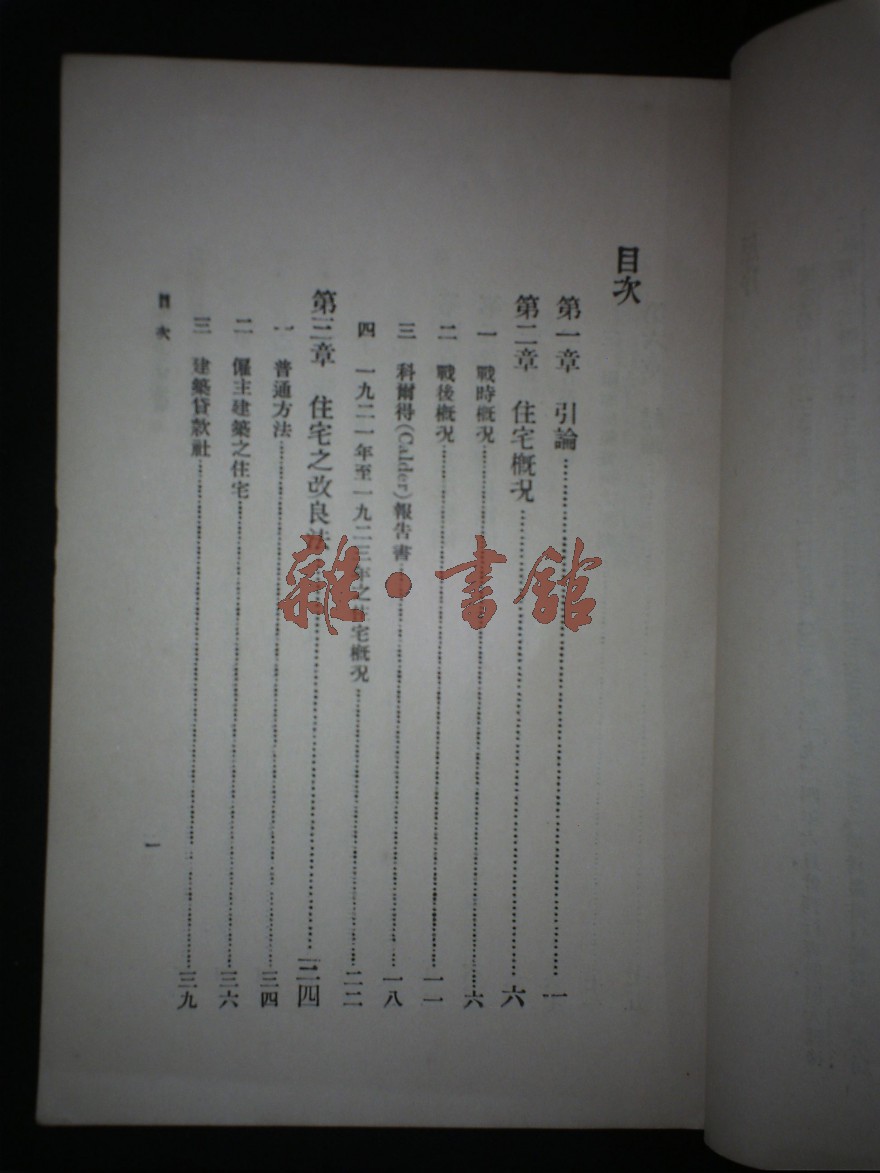 目次
第一章　引論……一
第二章　住宅概况……六
一　戰時概况……六
二　戰後概况……一一
三　科爾得(Calder)報告書……一八
四　一九二一年至一九二三年之住宅概况……二二
第三章　住宅之改良法……三四
一　普通方法……三四
二　僱主建築之住宅……三六
三　建築貸款社……三九
目次
一
雜·書館